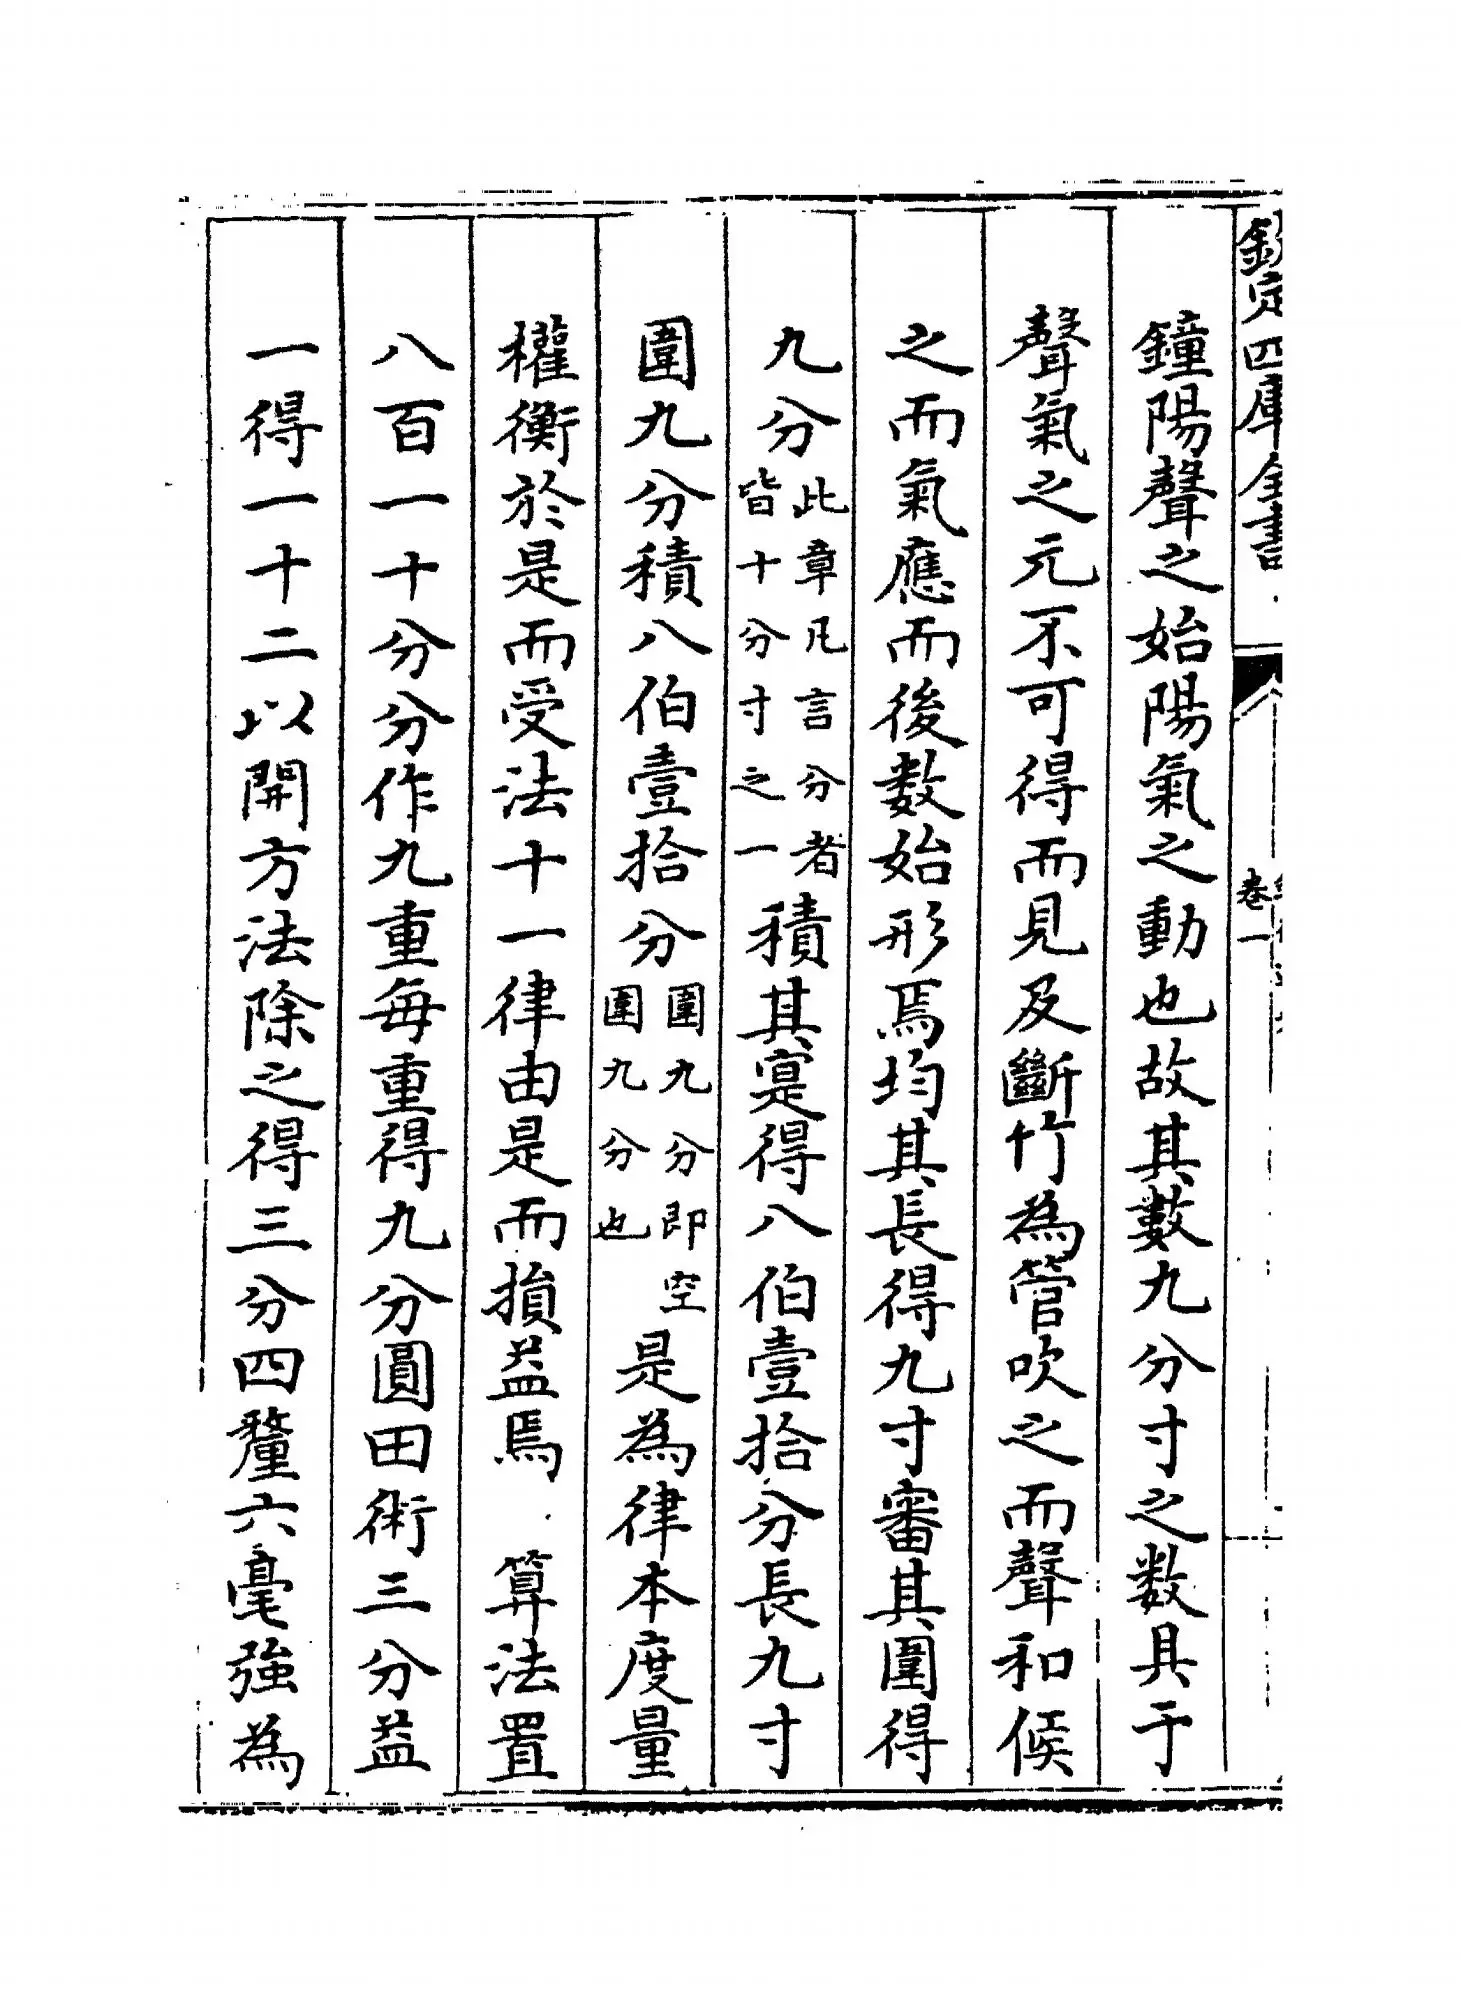 欽定四庫全書
卷一
鐘陽聲之始陽氣之動也故其數九分寸之数具于
聲氣之元不可得而見及斷竹為管吹之而聲和候
之而氣應而後数始形焉均其長得九寸審其圍得
九分此章凡言分者皆十分寸之一積其寔得八伯壹拾分長九寸
圍九分積八伯壹拾分圍九分即空圍九分也是為律本度量
權衡於是而受法十一律由是而損益焉 算法置
八百一十分分作九重每重得九分圓田術三分益
一得一十二以開方法除之得三分四釐六毫強為